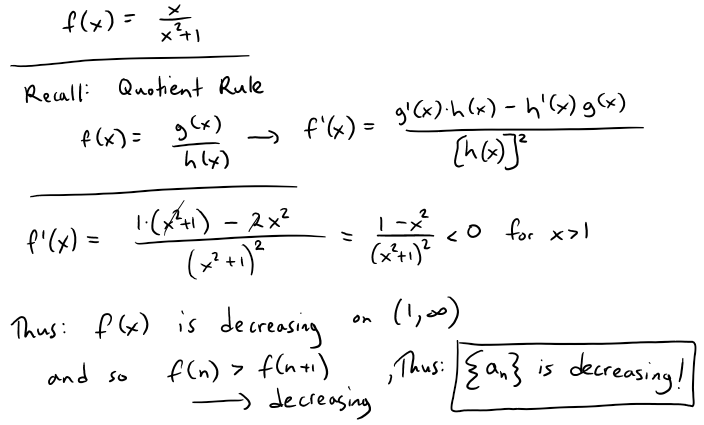 f(x) = x/(x²+1)
Recall: Quotient Rule
f(x) = g(x)/h(x) → f'(x) = (g'(x)·h(x) − h'(x) g(x))/[h(x)]²
f'(x) = (1·(x²+1) − 2x²)/(x²+1)² = (1−x²)/(x²+1)² < 0 for x>1
Thus: f(x) is decreasing on (1,∞)
and so f(n) > f(n+1) , Thus: {aₙ} is decreasing!
→ decreasing